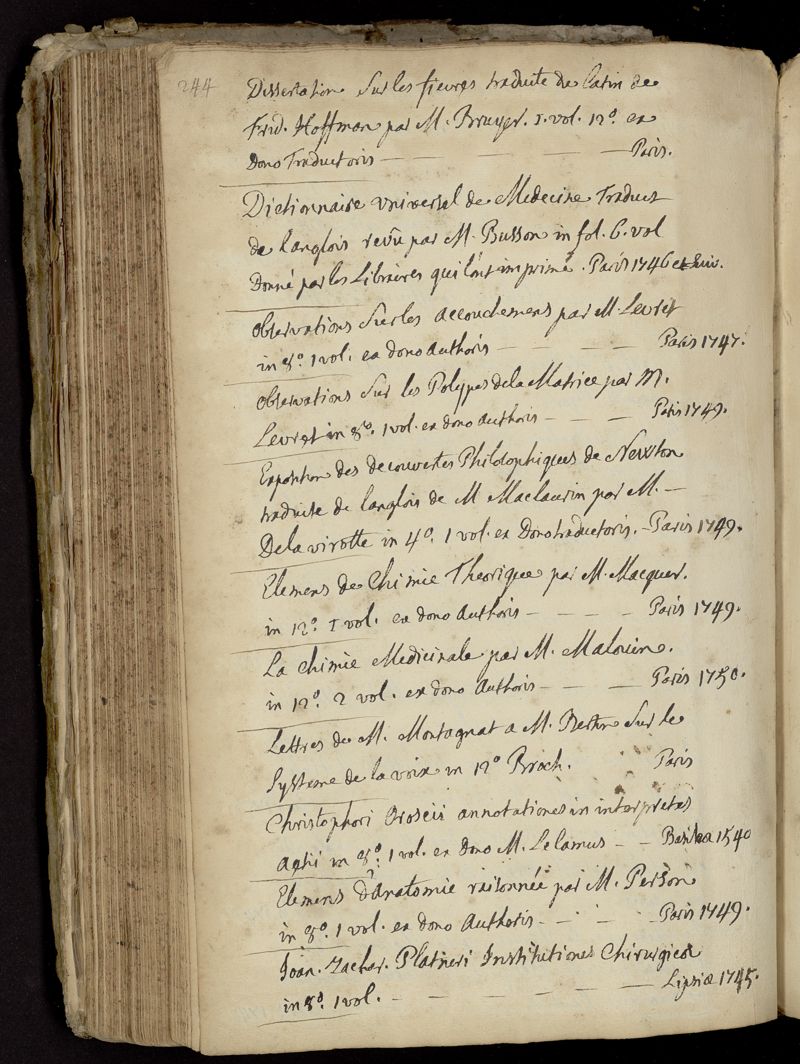 244
Dissertation sur les fievres traduite de latin de
Frid. Hoffman par M. Bruyer. 1. vol. 12°. ex
Dono Traductoris — — — — Paris.
Dictionnaire universel de Medecine traduit
de langlois revû par M. Busson in fol. 6. vol
Donné par les Libraires qui l'ont imprimé. Paris 1746 et suiv.
Observations sur les accouchemens par M. Levret
in 8°. 1 vol. ex dono Authoris — — — Paris 1747.
Observations sur les Polypes de la Matrice par M.
Levret in 8°. 1 vol. ex dono Authoris — — — Paris 1749.
Exposition des decouvertes Philosophiques de Newton
traduite de langlois de M Maclaurin par M. —
De la virotte in 4°. 1 vol. ex Dono traductoris. — Paris 1749.
Elemens de Chimie Theorique par M. Macquer.
in 12°. 1 vol. ex dono Authoris — — — — Paris 1749.
La chimie Medicinale par M. Malouin.
in 12°. 2 vol. ex dono Authoris — — — Paris 1750.
Lettres de M. Montagnat a M. Bertin sur le
Systeme de la voix in 12° Broch. Paris
Christophori Oroscii annotationes in interpretes
Aetii in 8°. 1 vol. ex dono M. Lelamus — — Basileæ 1540
Elemens d'Anatomie raisonnée par M. Person
in 8°. 1 vol. ex dono Authoris — — — Paris 1749.
Joan. Zachar. Platneri Institutiones Chirurgicæ
in 8°. 1 vol. — — — — — — Lipsiæ 1745.